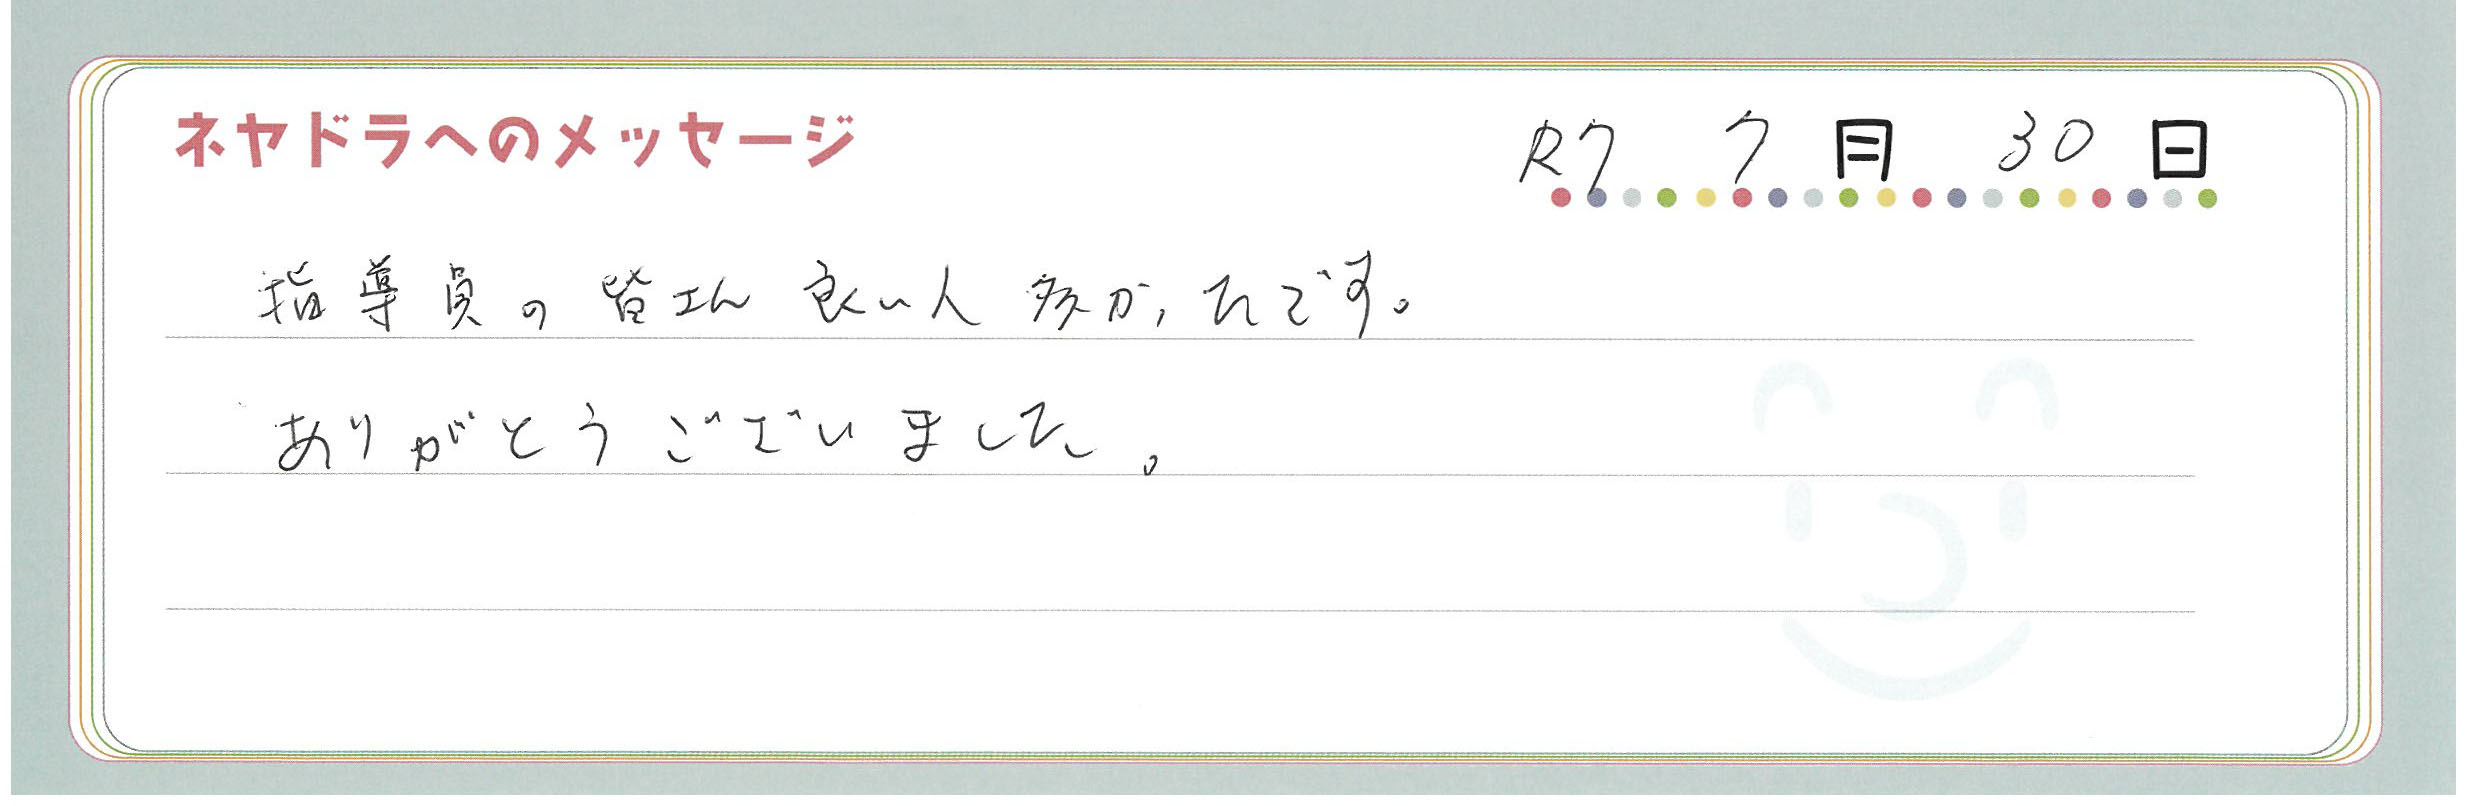 ネヤドラへのメッセージ
R7 7月 30日
指導員の皆さん良い人多かったです。
ありがとうございました。